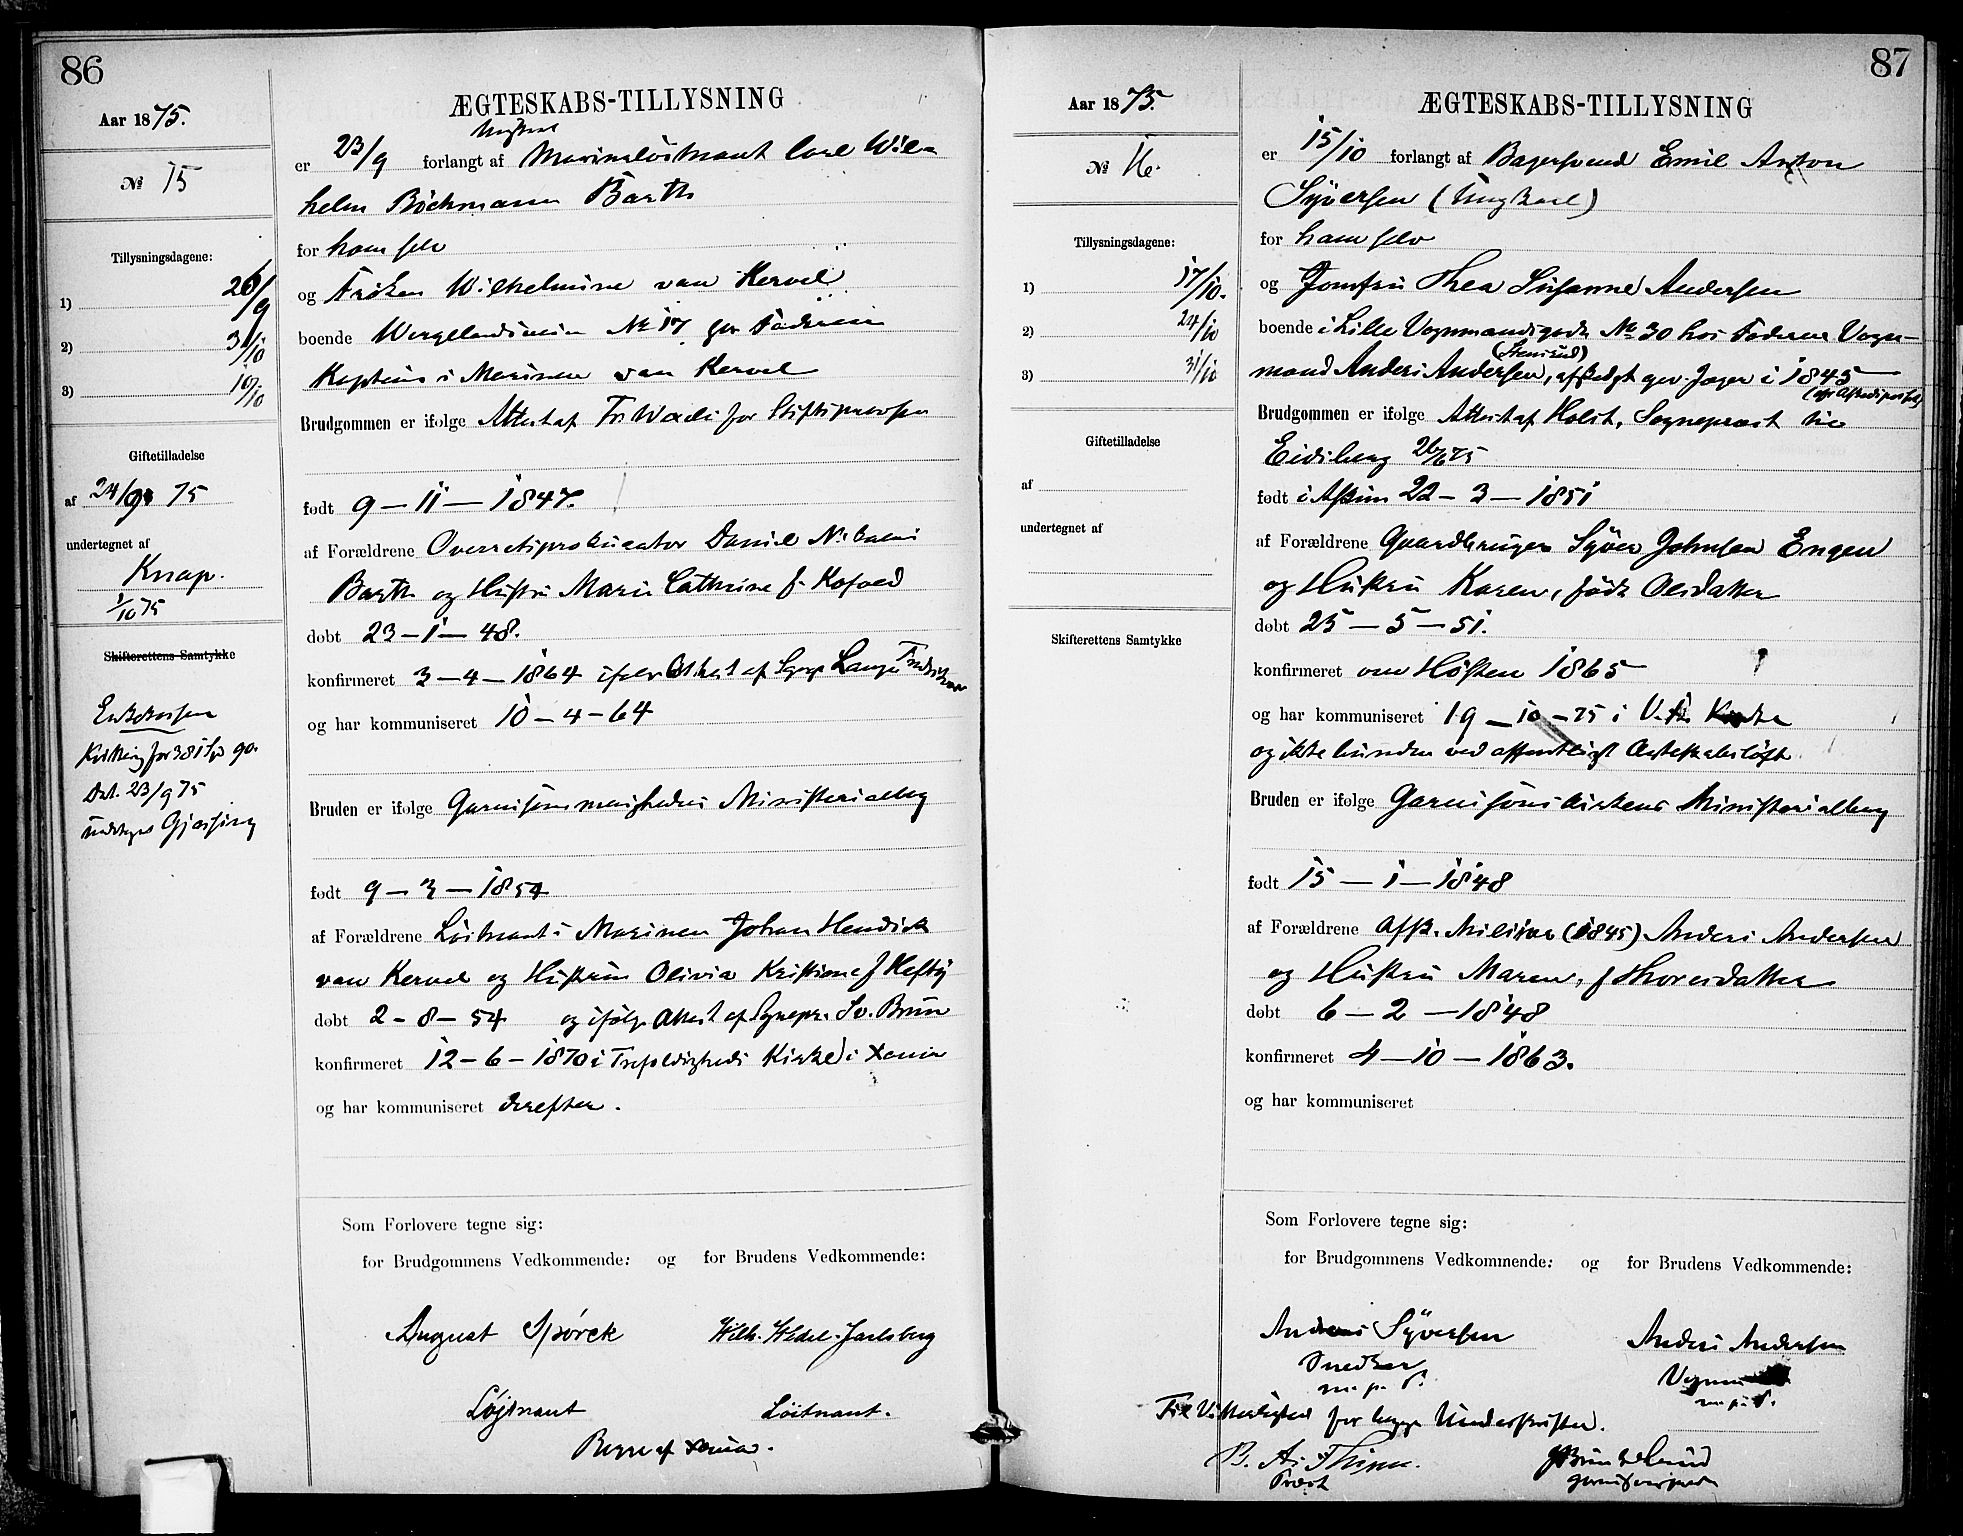 86
Aar 1875.
№ 15
Tillysningsdagene:
1) 26/9
2) 3/10
3) 10/10
Giftetilladelse
af 24/9 75
undertegnet af
Knap.
1/10 75
Skifterettens Samtykke
Dat. 23/9 75
ÆGTESKABS-TILLYSNING
Ungkarl
er 23/9 forlangt af Marineløitnant Carl Wil-
helm Böckmann Barth
for ham selv
og Frøken Wilhelmine van Kervel
boende Wergelandsveien № 17 hos Faderen
Kaptein i Marinen van Kervel
Brudgommen er ifølge Attest af Fr Wexels for Stiftsprovsten
født 9 – 11 – 1847.
af Forældrene Overretsprokurator Daniel
Barth og Hustru Marie Cathrine f. Kofoed
døbt 23 – 1 – 48.
konfirmeret 3 – 4 – 1864 ifølge Attest af Lange
og har kommuniseret 10 – 4 – 64
Bruden er ifølge Garnisonsmenighedens Ministerialbog
født 9 – 3 – 1854
af Forældrene Løitnant i Marinen Johan Hendrik
van Kervel og Hustru Olivia Kristiane f Heftÿ
døbt 2 – 8 – 54 og ifølge Attest af Sognepr. Sv. Brun
konfirmeret 12 – 6 – 1870 i Trefoldigheds Kirke i Xania
og har kommuniseret derefter.
Som Forlovere tegne sig:
for Brudgommens Vedkommende: og for Brudens Vedkommende:
August Spørck Wilh. Wedel-Jarlsberg
Løjtnant Løitnant.
Begge af Xania.
87
Aar 1875.
№ 16.
Tillysningsdagene:
1) 17/10.
2) 24/10
3) 31/10
Giftetilladelse
af
undertegnet af
Skifterettens Samtykke
ÆGTESKABS-TILLYSNING
er 15/10 forlangt af Bagersvend Emil Anton
Syversen (Ungkarl)
for ham selv
og Jomfru Thea Susanne Andersen
boende i Lille Vognmandsgade № 30 hos Faderen Vogn-
(Stensrud)
mand Anders Andersen, afskediget gev. Jæger i 1845
Brudgommen er ifølge Attest af Holst, Sogneprest til
Eidsberg 26/6 75
født i Askim 22 – 3 – 1851
af Forældrene Gaardbruger Syver Johnsen Engen
og Hustru Karen, født Olsdatter
døbt 25 – 5 – 51.
konfirmeret om Høsten 1865
og har kommuniseret 19 – 10 – 75 i V. A. Kirke
og ikke bunden ved offentligt Ægteskabsløfte
Bruden er ifølge Garnisonskirkens Ministerialbog
født 15 – 1 – 1848
af Forældrene Afsk. Militær (1845) Anders Andersen
og Hustru Maren, f Thoresdatter
døbt 6 – 2 – 1848
konfirmeret 4 – 10 – 1863.
og har kommuniseret
Som Forlovere tegne sig:
for Brudgommens Vedkommende: og for Brudens Vedkommende:
Anders Syversen Anders Andersen
Snedker
m. p. P. m. p. P.
Til Vitterlighed for begge Underskrifter.
Præst